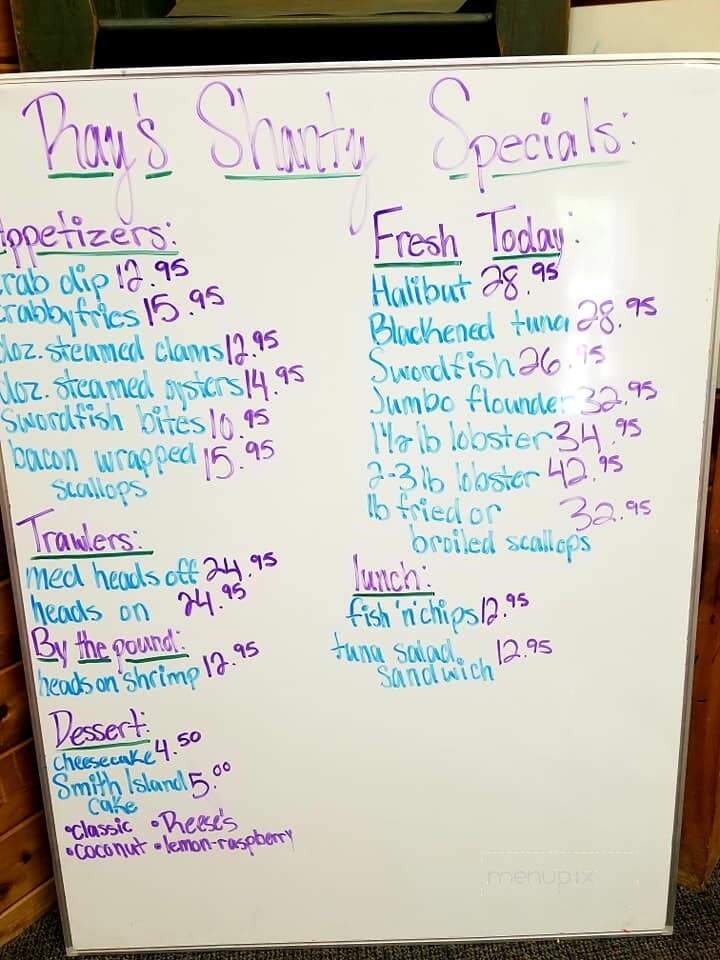 Ray's Shanty Specials:
Appetizers:
crab dip 12.95
crabby fries 15.95
doz. steamed clams 12.95
doz. steamed oysters 14.95
Swordfish bites 10.95
bacon wrapped 15.95
scallops
Trawlers:
med heads off 24.95
heads on 24.95
By the pound:
heads on shrimp 12.95
Dessert:
cheesecake 4.50
Smith Island 5.00
cake
•classic •Reese's
•coconut •lemon-raspberry
Fresh Today:
Halibut 28.95
Blackened tuna 28.95
Swordfish 26.95
Jumbo flounder 32.95
1 1/2 lb lobster 34.95
2-3 lb lobster 42.95
lb fried or 32.95
broiled scallops
lunch:
fish 'n' chips 12.95
tuna salad 12.95
sandwich
menupix